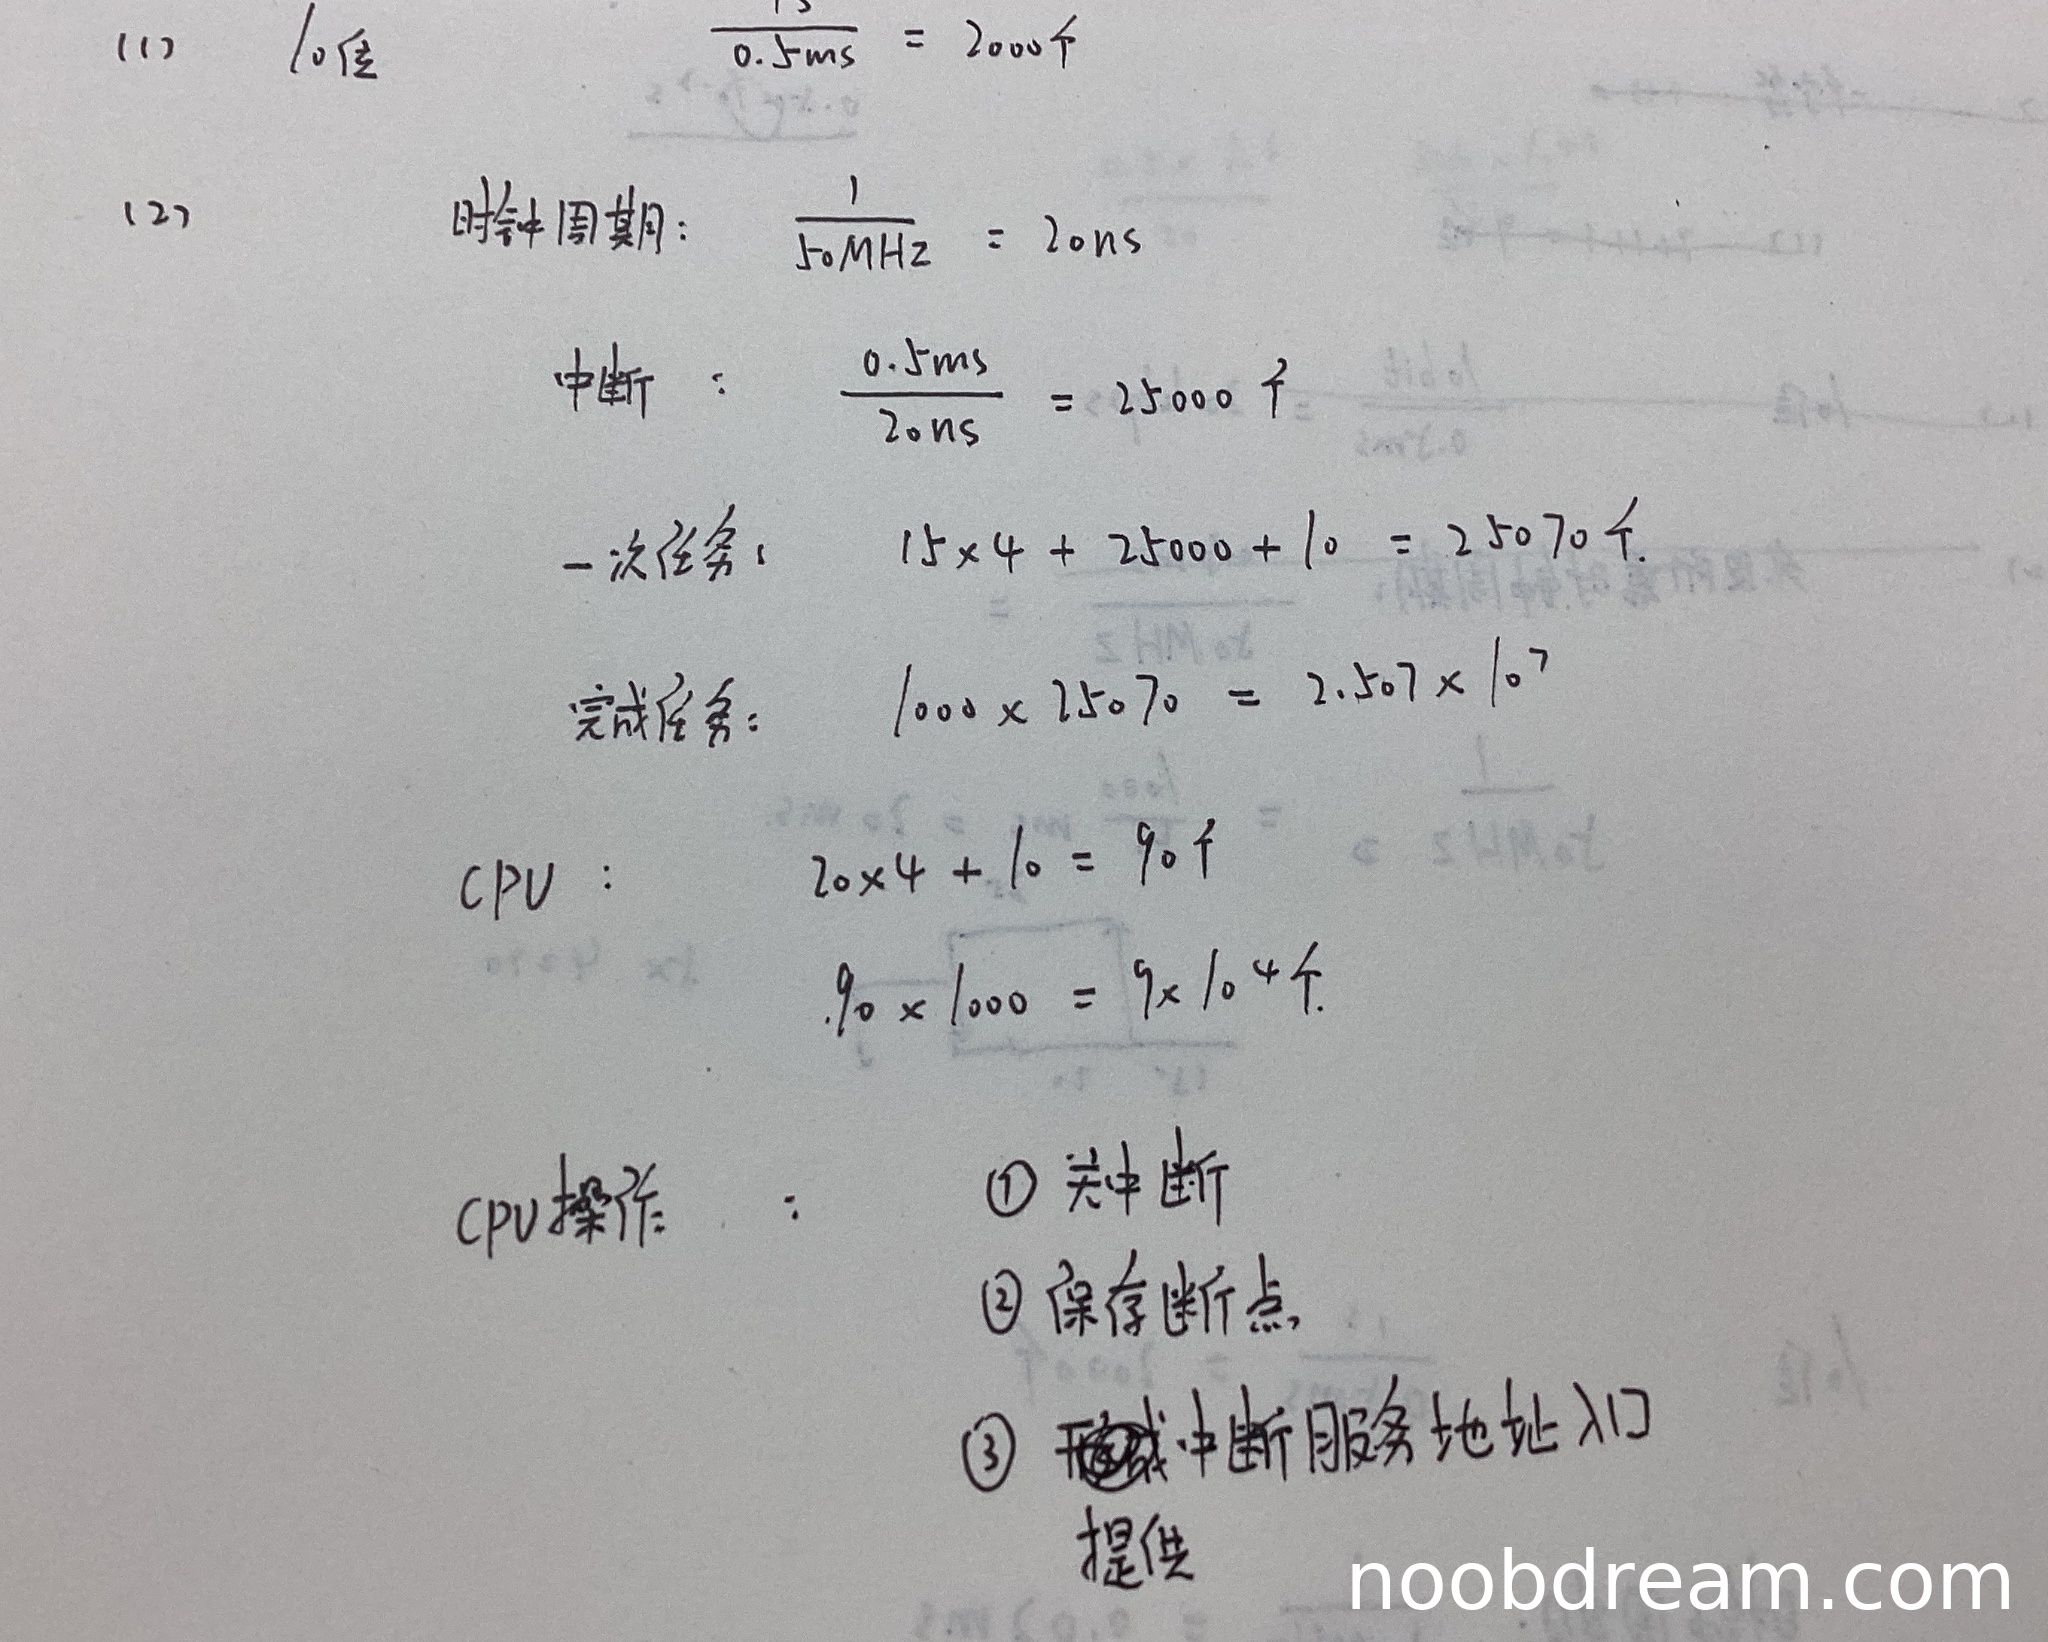 (1) 10位 1s/0.5ms = 2000个
(2) 时钟周期: 1/50MHz = 20ns
中断 : 0.5ms/20ns = 25000个
一次任务: 15×4 + 25000 + 10 = 25070个.
完成任务: 1000 × 25070 = 2.507 × 10^7
CPU : 20×4 + 10 = 90个
90 × 1000 = 9×10^4个.
CPU操作 : ① 关中断
② 保存断点
③ 中断服务地址入口
提供
noobdream.com